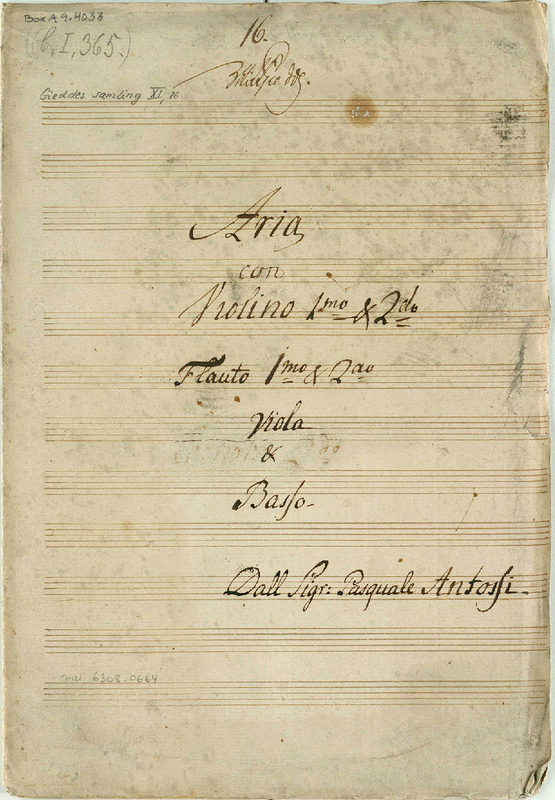 Box A 9.4033
(C, I, 365.)
16.
Gieddes samling XI, 16
Aria
con
Violino 1mo & 2do
Flauto 1mo & 2do
Viola
&
Basso.
Dall Sigr: Pasquale Antossi.
mu 6308.0664